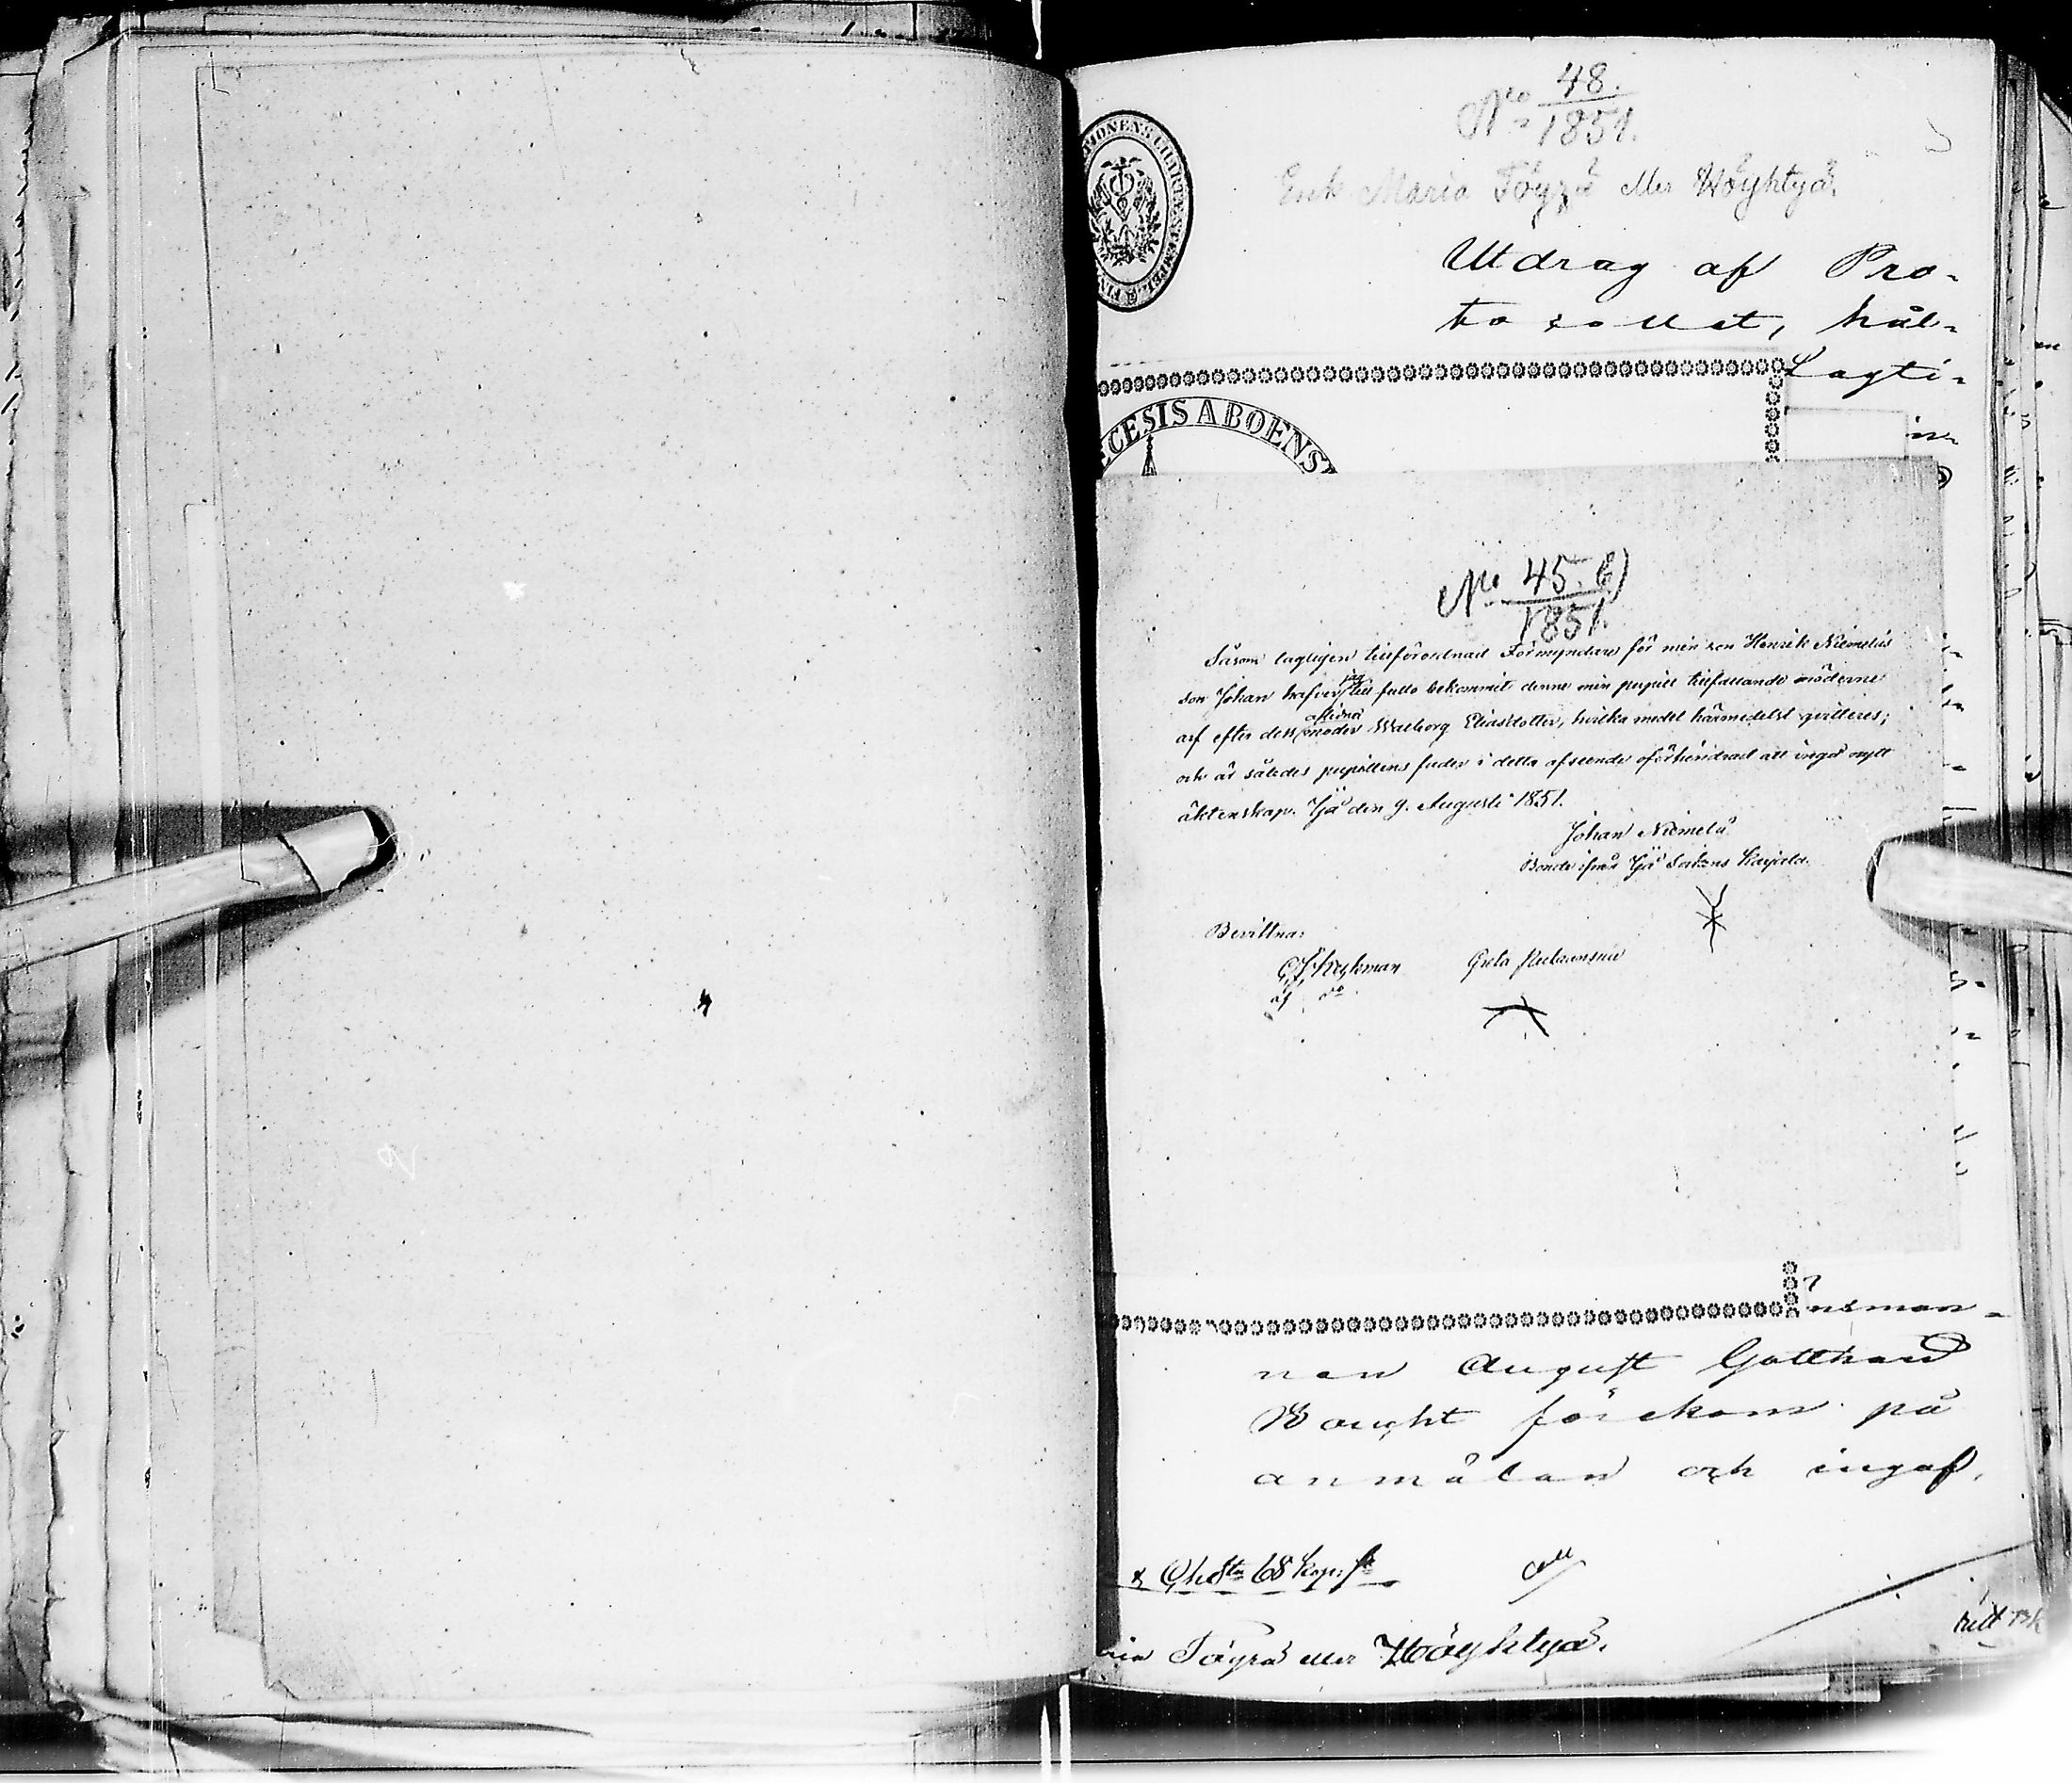 No 48.
1851.
Enk Maria Töyrä eller Höyhtyä.
Utdrag af Pro-
tocollet, hål-
Lagti-
CESIS ABOENS
No 45. b)
1851.
Såsom lagligen tillförordnad Förmyndare för min son Henrik Niemeläs
son Johan hafver jag till fullo bekommit denne min pupill tillfallande möderne
arf efter dess aflidna moder Walborg Eliasdotter, hvilka medel härmedelst qvitteres;
och är således pupillens fader i detta afseende oförhindrad att ingå nytt
äktenskap. Ijå den 9. Augusti 1851.
Johan Niemelä
Bonde ifrån Ijå Sockens
Bevittna:
Greta
nsman-
nen August Gotthard
förekom på
anmälan och ingaf,
68 kop. s
Töyrä eller Höyhtyä.